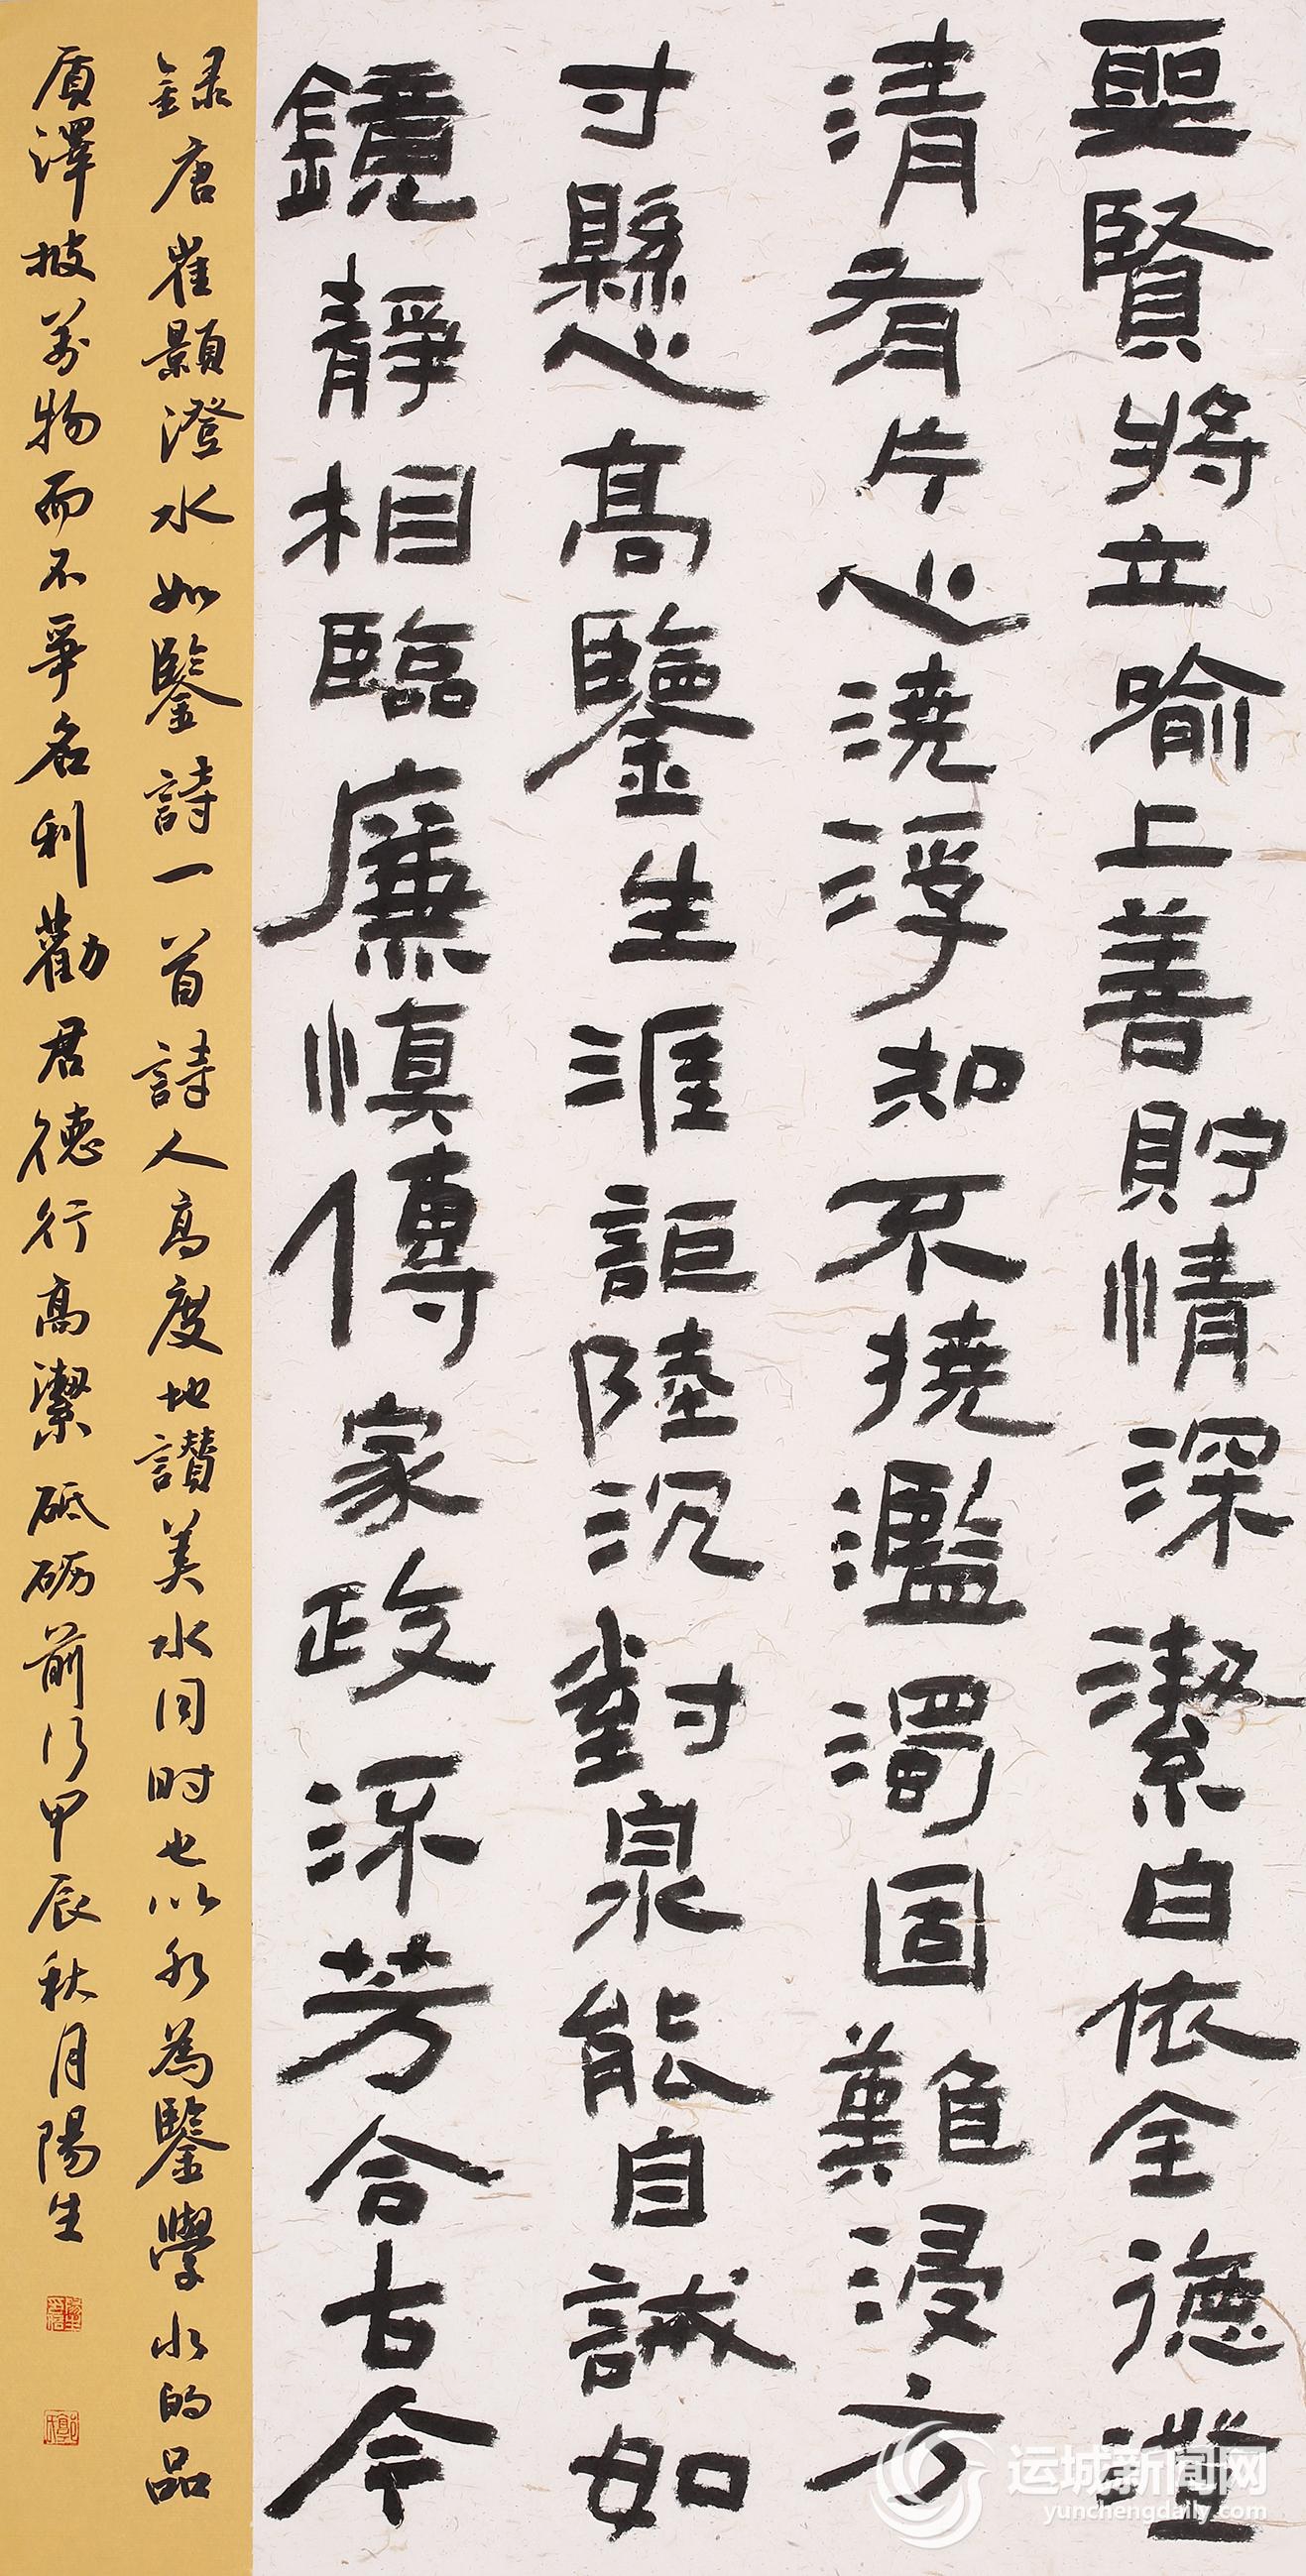 聖賢將立喻上善貯情深潔白依全德澄
清有片心澆浮知不撓濫濁固難浸方
寸懸高鑒生涯詎陸沉對泉能自誡如
鏡靜相臨廉慎傳家政流芳合古今
錄唐崔顥澄水如鑒詩一首詩人高度地讚美水同时也以水為鑒學水的品
质澤披萬物而不爭名利勸君德行高潔砥砺前行甲辰秋月陽生
运城新闻网
yunchengdaily.com